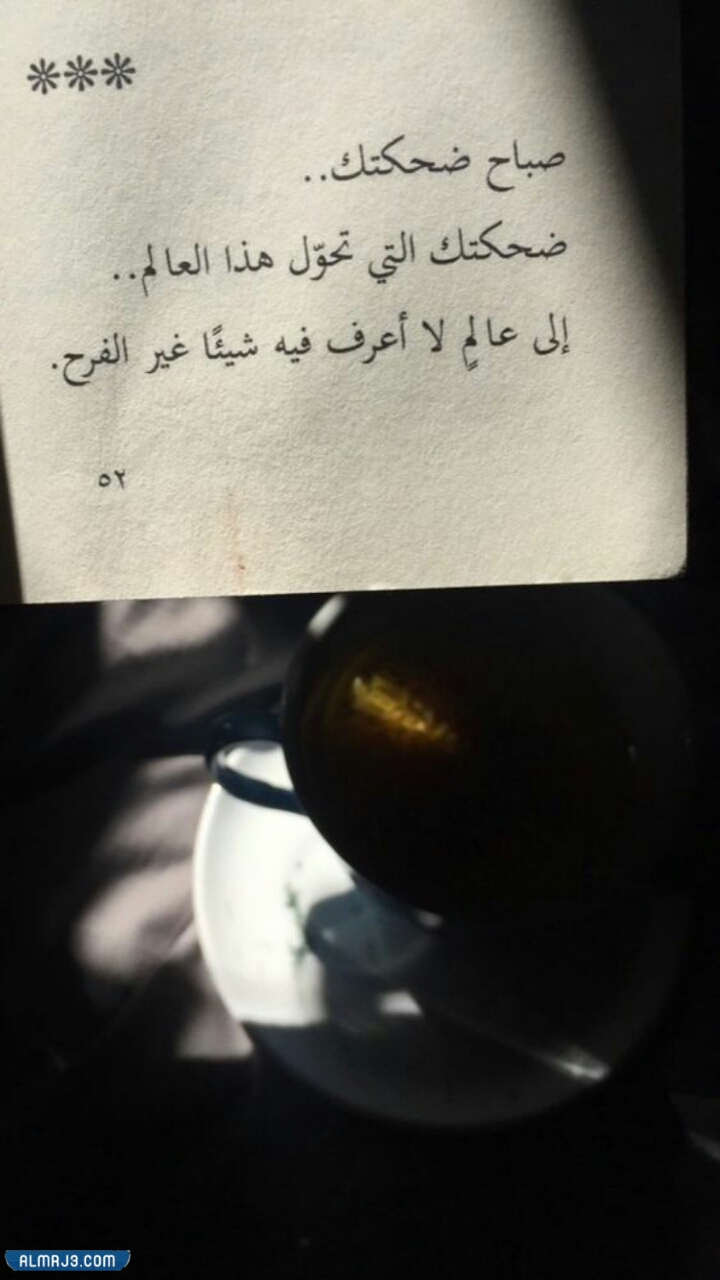 ***
صباح ضحكتك..
ضحكتك التي تحوّل هذا العالم..
إلى عالمٍ لا أعرف فيه شيئًا غير الفرح.
٥٢
ALMRJ3.COM